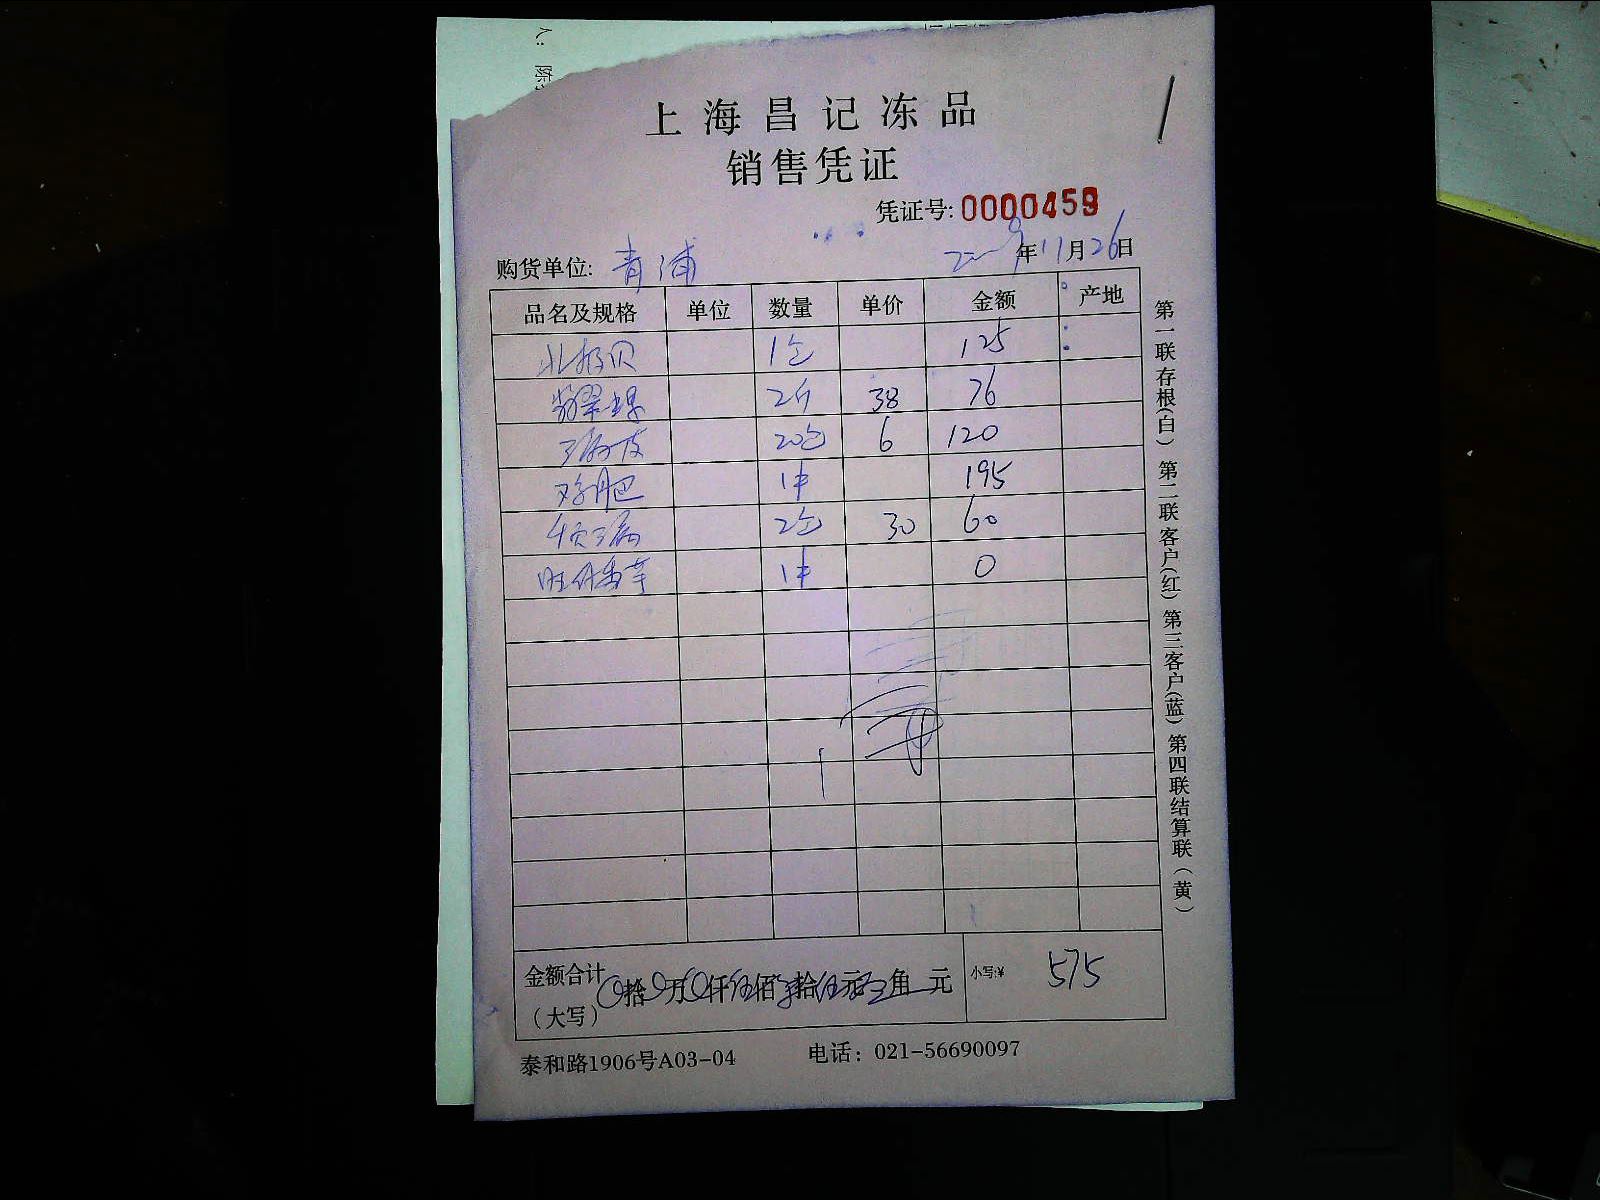 人: 陈
上海昌记冻品
销售凭证
凭证号: 0000459
购货单位: 青浦 年11月26日
品名及规格 单位 数量 单价 金额 产地
北极贝 1包 125
翡翠螺 2斤 38 76
20包 6 120
1件 195
2包 30 60
1件 0
金额合计 拾 万 仟伍佰 拾伍元 角 元 小写:¥ 575
(大写)
泰和路1906号A03-04 电话: 021-56690097
第一联存根(白) 第二联客户(红) 第三客户(蓝) 第四联结算联(黄)